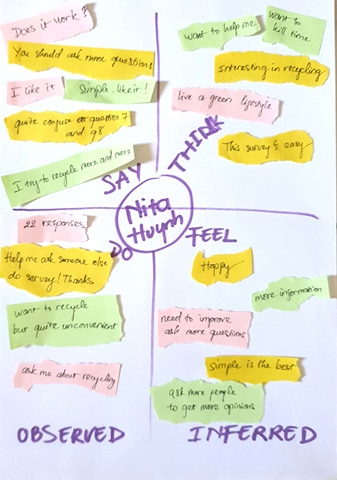 Does it work?
You should ask more questions
I like it
Simple. like it!
quite confuse on question 7
and 98
I try to recycle more and more
SAY
want to help me
want to
kill time
Interesting in recycling
live a green lifestyle
This survey's easy
THINK
Nita
Huynh
22 responses
Help me ask someone else
do survey! Thanks
want to recycle
but quite unconvenient
ask me about recycling
DO
OBSERVED
FEEL
Happy
more information
need to improve
ask more questions
simple is the best
ask more people
to get more opinions
INFERRED